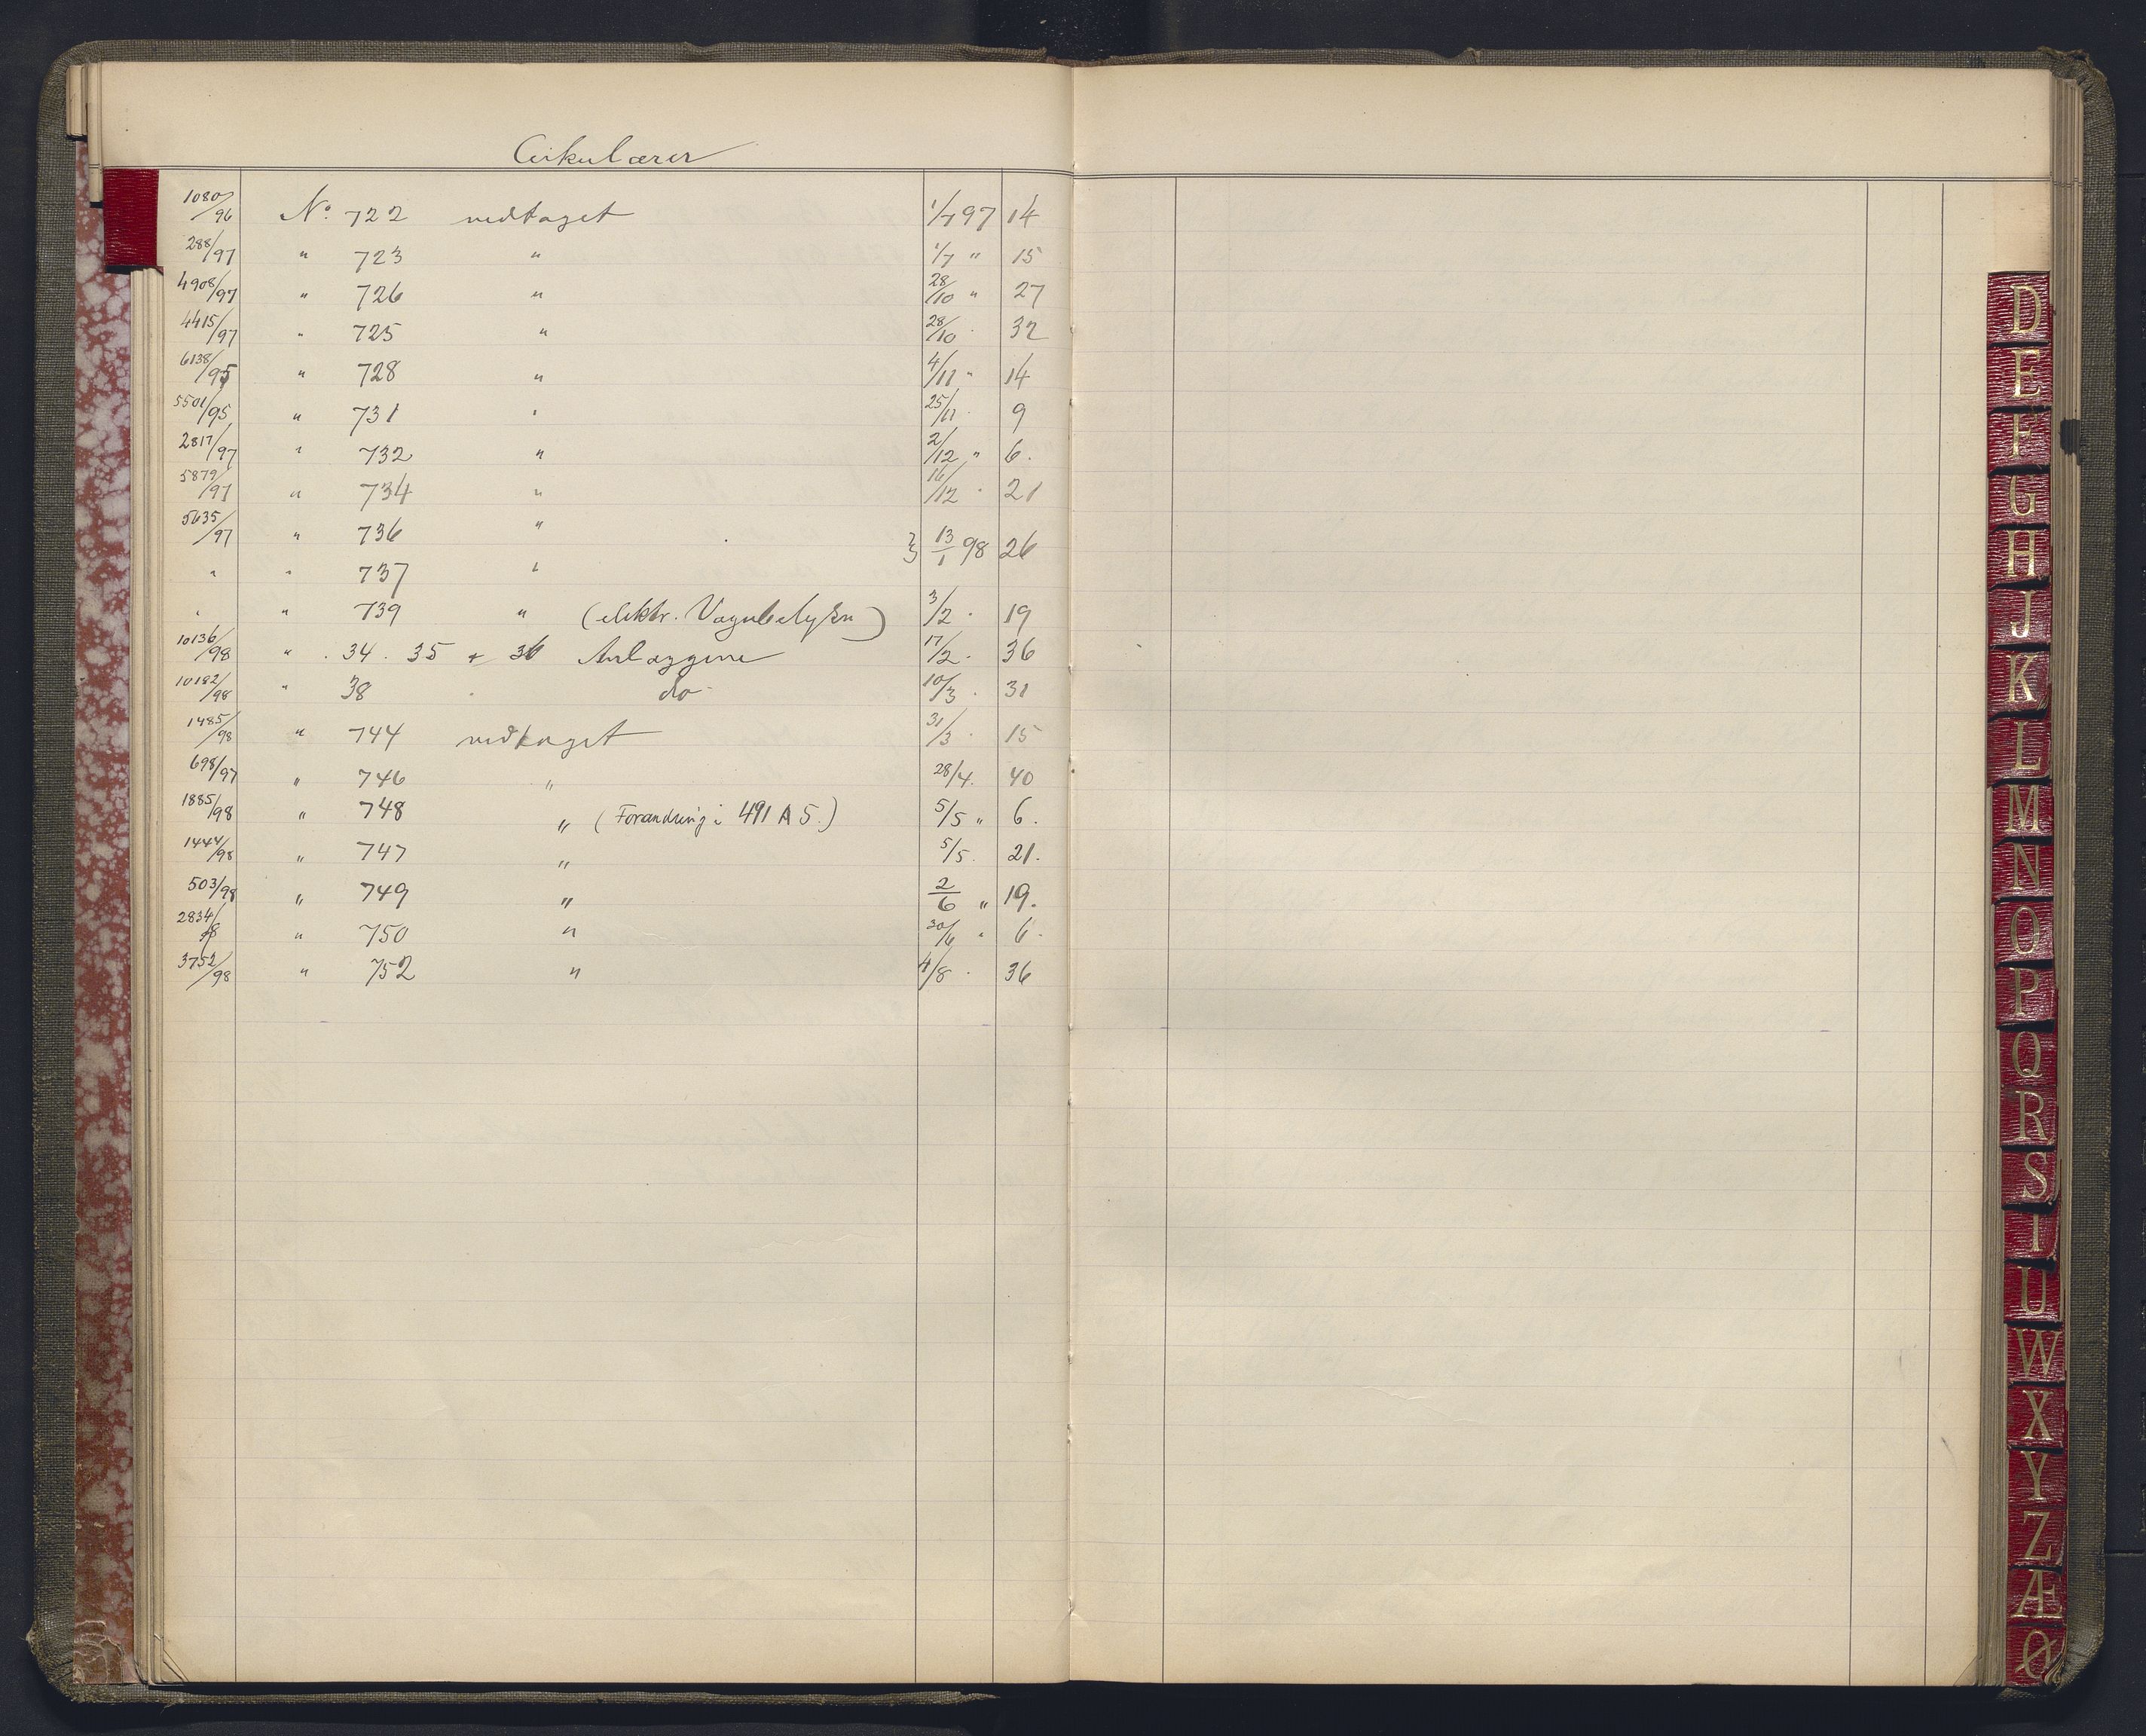 Cirkulærer
1080/96 No. 722 vedtaget 1/7 97 14
288/97 " 723 " 1/7 " 15
4908/97 " 726 " 28/10 " 27
4415/97 " 725 " 28/10 " 32
6138/95 " 728 " 4/11 " 14
5501/95 " 731 " 25/11 " 9
2817/97 " 732 " 2/12 " 6.
5879/97 " 734 " 16/12 " 21
5635/97 " 736 " } 13/1 98 26
" " 737 "
" " 739 " (elektr. Vognbelysn) 3/2 " 19
10136/98 " 34. 35 + 36 Anlæggene 17/2 " 36
10182/98 " 38 do 10/3 " 31
1485/98 " 744 vedtaget 31/3 " 15
698/97 " 746 " 28/4. 40
1885/98 " 748 " (Forandring i 491 A 5.) 5/5 " 6.
1444/98 " 747 " 5/5. 21.
503/98 " 749 " 2/6 " 19.
2834/98 " 750 " 30/6 " 6.
3752/98 " 752 " 4/8 " 36
D
E
F
G
H
J
K
L
M
N
O
P
Q
R
S
T
U
W
X
Y
Z
Æ
Ø